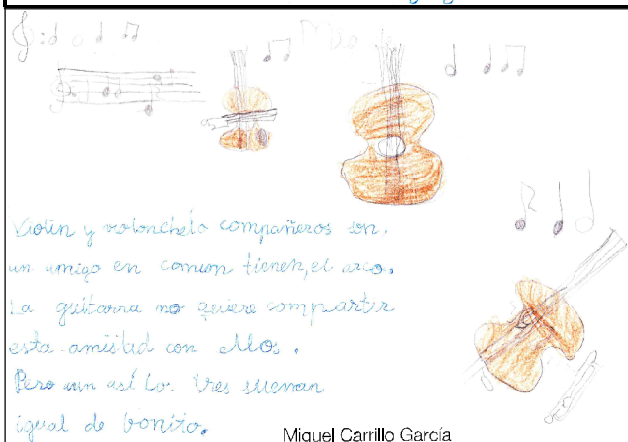 Violín y violonchelo compañeros son,
un amigo en comun tienen, el arco.
La guitarra no quiere compartir
esta amistad con ellos.
Pero aun así los tres suenan
igual de bonito.
Miguel Carrillo García